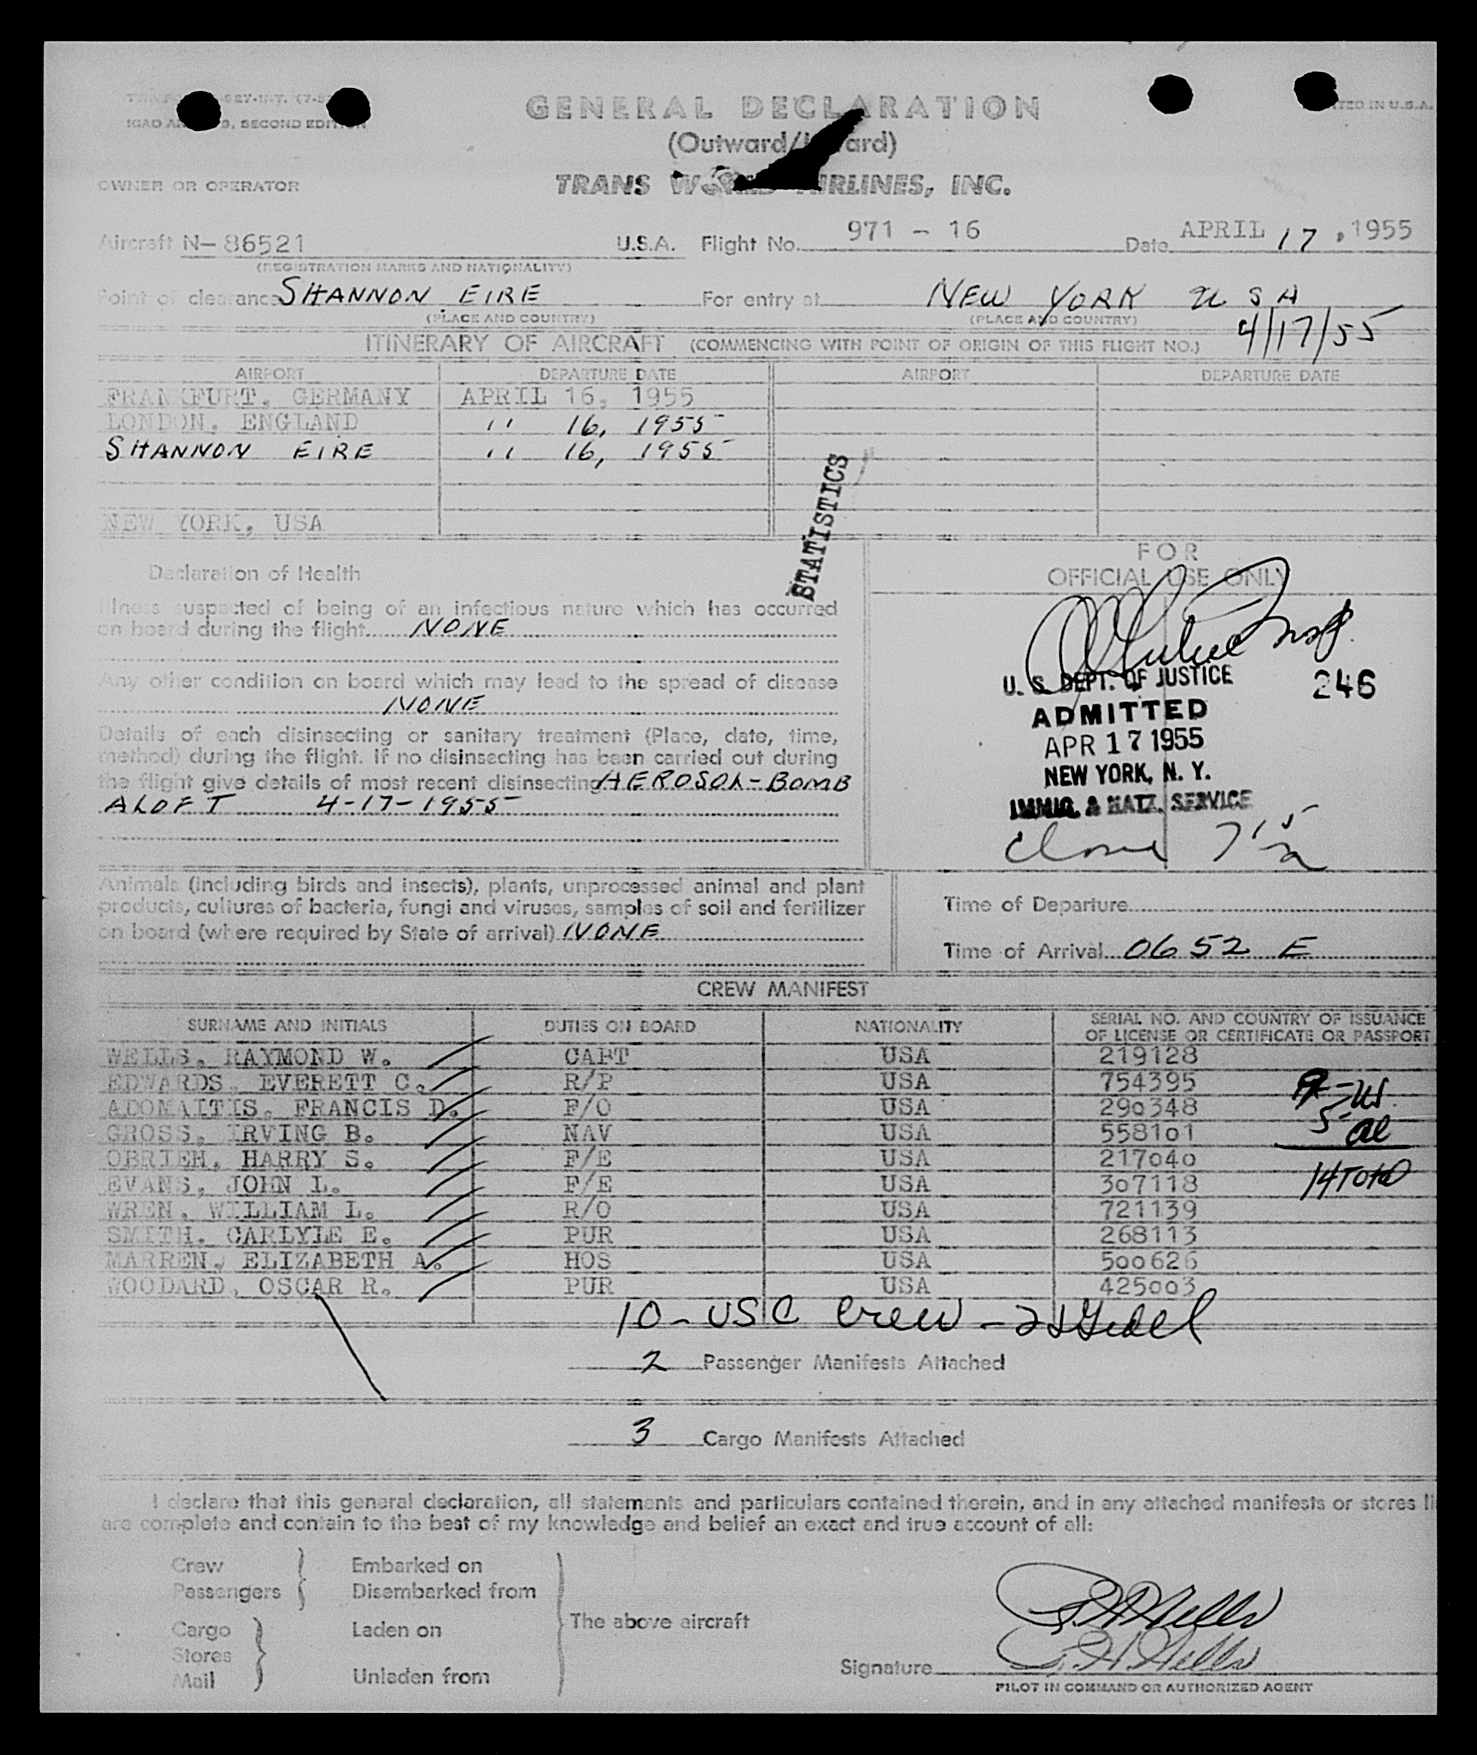 SECOND EDITION
PRINTED IN U.S.A.
GENERAL DECLARATION
(Outward/Inward)
OWNER OR OPERATOR TRANS WORLD AIRLINES, INC.
Aircraft N-86521 U.S.A. Flight No. 971 - 16 Date APRIL 17, 1955
(REGISTRATION MARKS AND NATIONALITY)
Point of clearance SHANNON EIRE For entry at NEW YORK U S A
(PLACE AND COUNTRY) (PLACE AND COUNTRY)
4/17/55
ITINERARY OF AIRCRAFT (COMMENCING WITH POINT OF ORIGIN OF THIS FLIGHT NO.)
AIRPORT DEPARTURE DATE AIRPORT DEPARTURE DATE
FRANKFURT, GERMANY APRIL 16, 1955
LONDON, ENGLAND " 16, 1955
SHANNON EIRE " 16, 1955
NEW YORK, USA
STATISTICS
Declaration of Health
Illness suspected of being of an infectious nature which has occurred
on board during the flight NONE
Any other condition on board which may lead to the spread of disease
NONE
Details of each disinsecting or sanitary treatment (Place, date, time,
method) during the flight. If no disinsecting has been carried out during
the flight give details of most recent disinsecting AEROSOL-BOMB
ALOFT 4-17-1955
FOR
OFFICIAL USE ONLY
U. S. DEPT. OF JUSTICE 246
ADMITTED
APR 17 1955
NEW YORK, N. Y.
IMMIG. & NATZ. SERVICE
Animals (including birds and insects), plants, unprocessed animal and plant
products, cultures of bacteria, fungi and viruses, samples of soil and fertilizer
on board (where required by State of arrival) NONE
Time of Departure
Time of Arrival 0652 E
CREW MANIFEST
SURNAME AND INITIALS DUTIES ON BOARD NATIONALITY SERIAL NO. AND COUNTRY OF ISSUANCE
OF LICENSE OR CERTIFICATE OR PASSPORT
WELLS, RAYMOND W. CAPT USA 219128
EDWARDS, EVERETT C. R/P USA 754395
ADOMAITIS, FRANCIS D. F/O USA 290348
GROSS, IRVING B. NAV USA 558101
OBRIEN, HARRY S. F/E USA 217040
EVANS, JOHN L. F/E USA 307118
WREN, WILLIAM L. R/O USA 721139
SMITH, CARLYLE E. PUR USA 268113
MARREN, ELIZABETH A. HOS USA 500626
WOODARD, OSCAR R. PUR USA 425003
9-US
5-al
14 Total
10-USC Crew -
2 Passenger Manifests Attached
3 Cargo Manifests Attached
I declare that this general declaration, all statements and particulars contained therein, and in any attached manifests or stores
are complete and contain to the best of my knowledge and belief an exact and true account of all:
Crew Embarked on
Passengers Disembarked from
The above aircraft
Cargo Laden on
Stores
Mail Unladen from
Signature
PILOT IN COMMAND OR AUTHORIZED AGENT